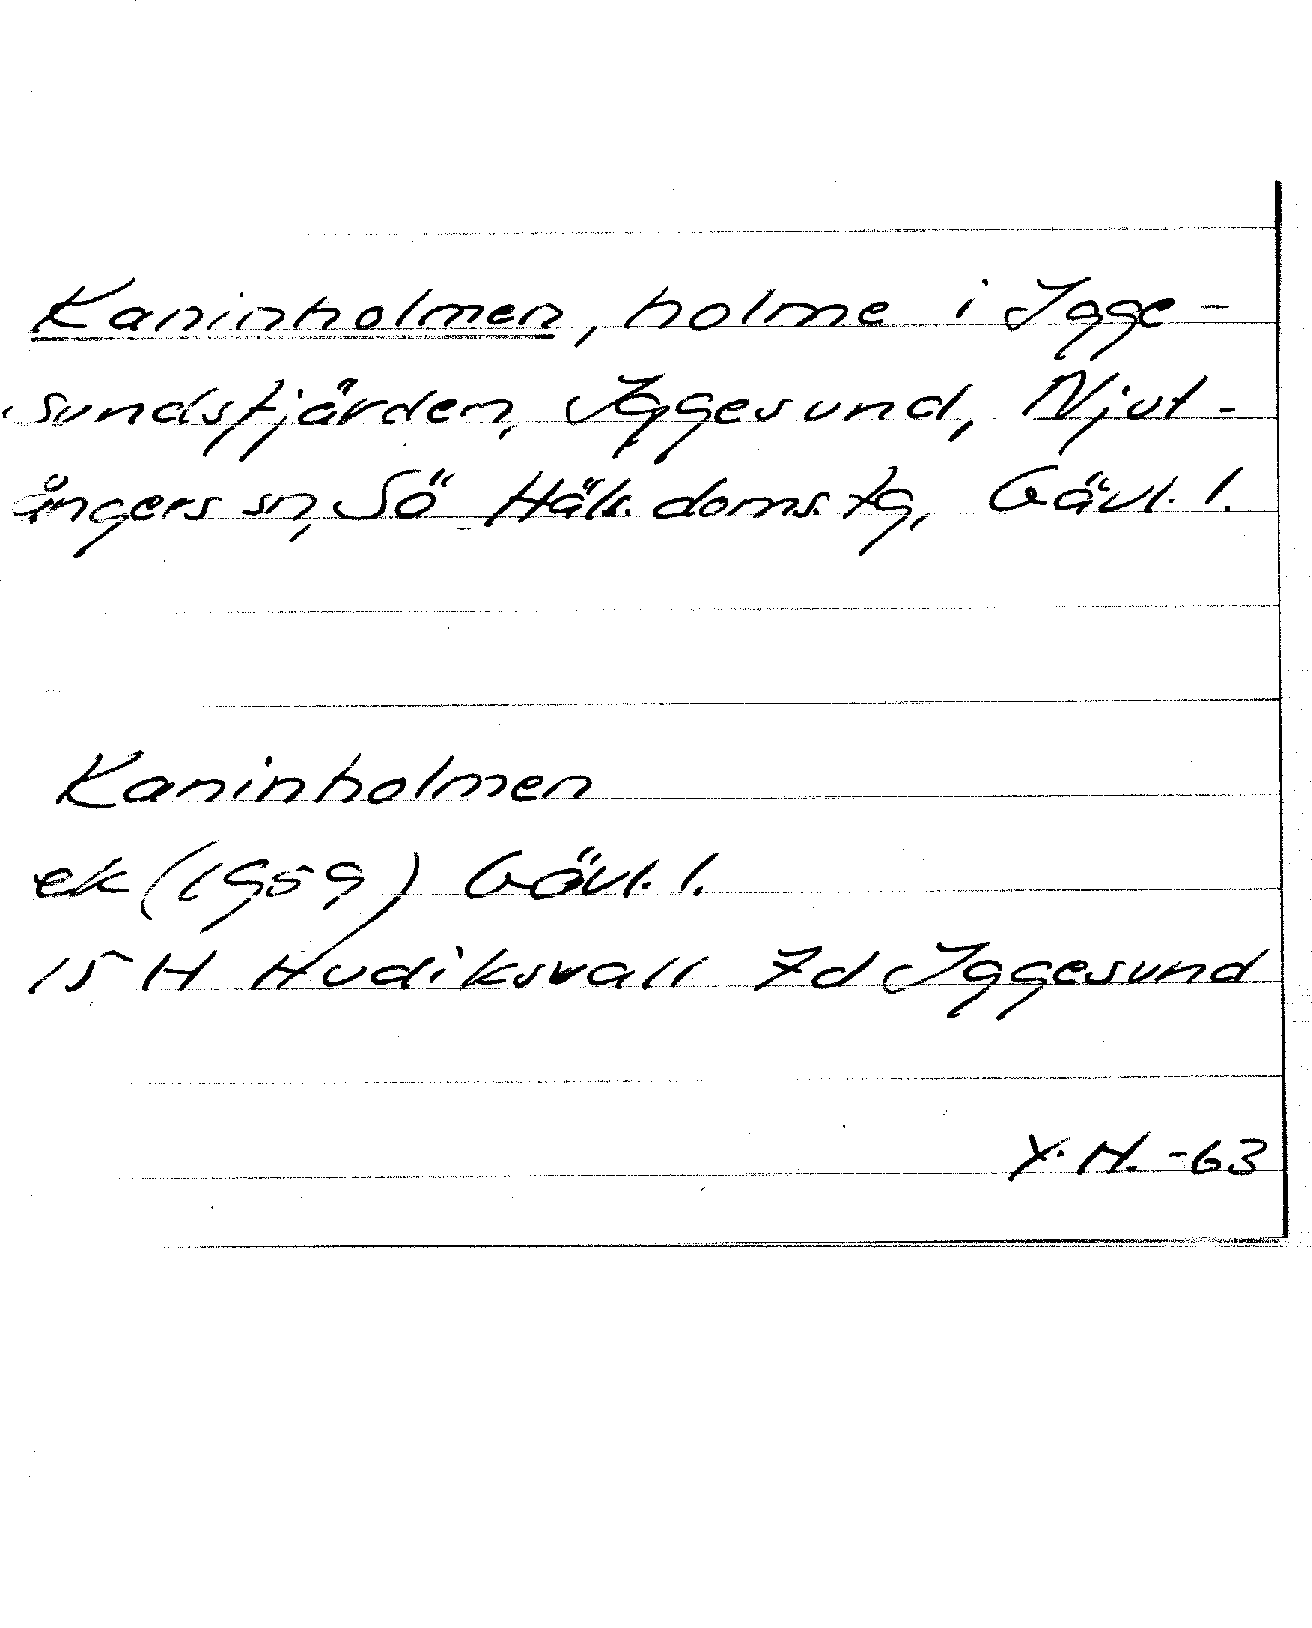 Kaninholmen, holme i Igge-
sundsfjärden, Iggesund, Njut-
ångers sn, Sö Häls. doms. tg, Gävl. l.
Kaninholmen
ek (1959) Gävl. l.
15 H Hudiksvall 7d Iggesund
Y. H. -63